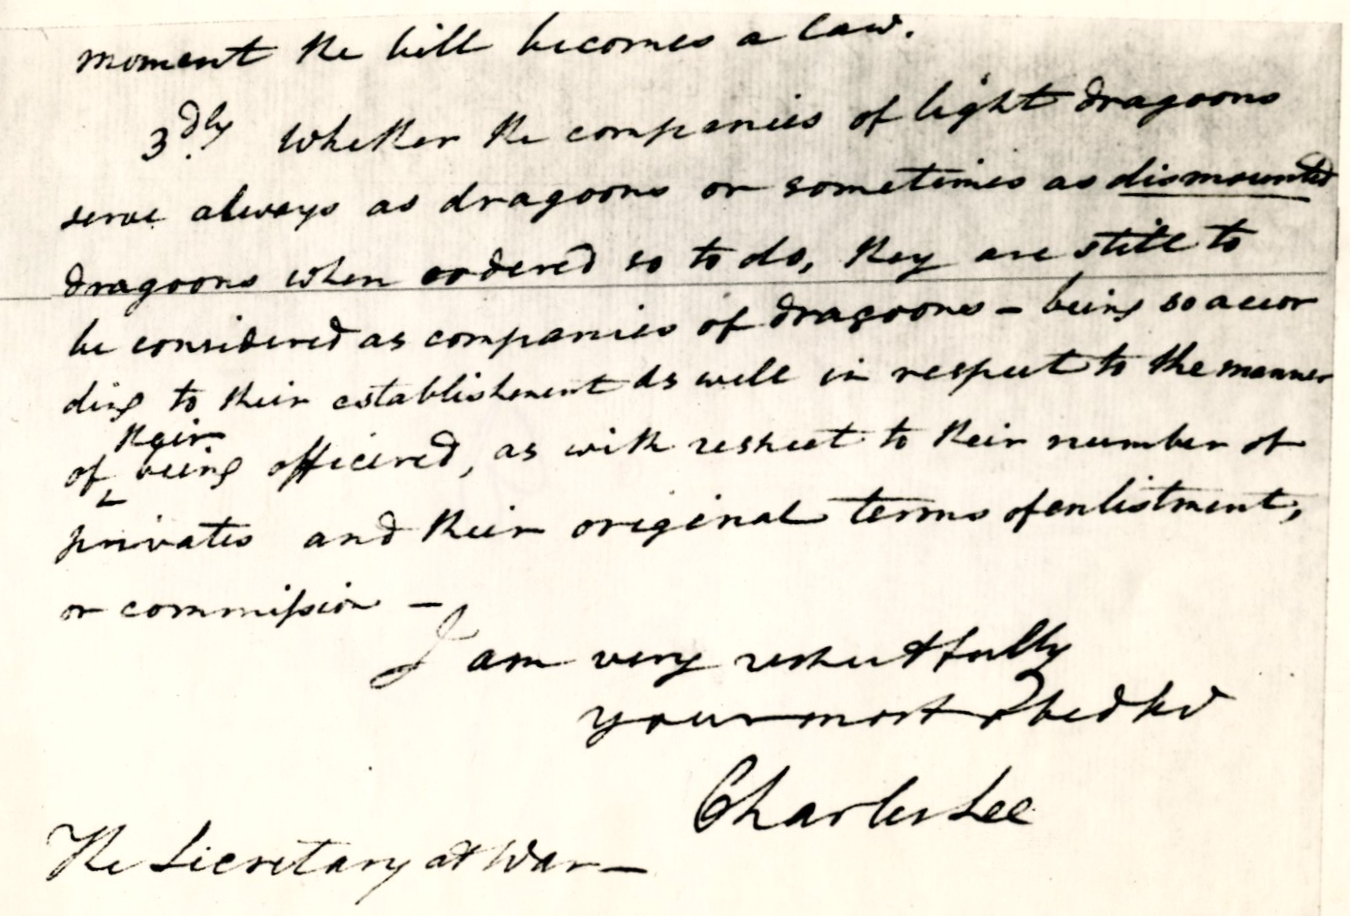 moment the bill becomes a law.
3dly. Whether the companies of light dragoons
serve always as dragoons or sometimes as dismounted
dragoons when ordered so to do, they are still to
be considered as companies of dragoons - being so accor
ding to their establishment as well in respect to the manner
of their being officered, as with respect to their number of
privates and their original terms of enlistment,
or commission -
I am very respectfully
your most Obed hV
Charles Lee
The Secretary at War -